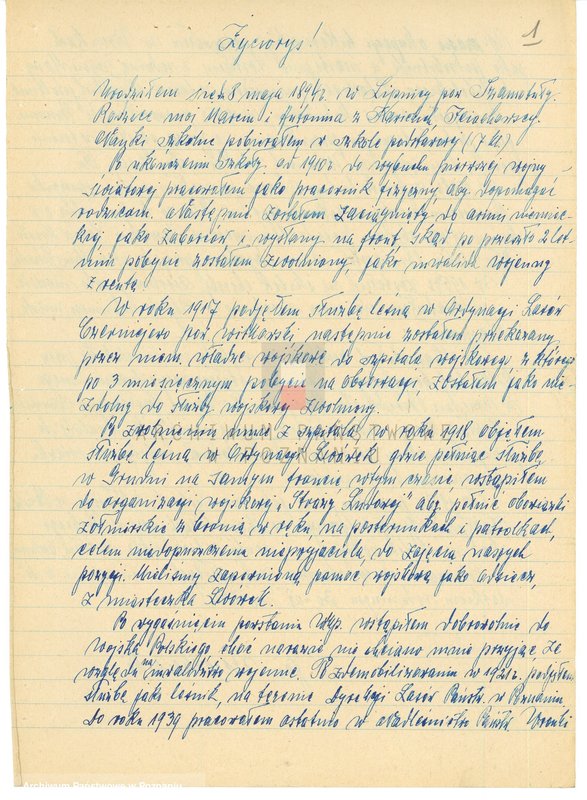 1
Życiorys!
Urodziłem się d. 8 maja 1894r. w Lipnicy pow Szamotuły.
Rodzice moi Marcin i Antonina z
Nauki szkolne pobierałem w szkole podstawowej (7 kl.)
Po ukończeniu szkoły od 1910r. do wybuchu pierwszej wojny
światowej pracowałem jako pracownik fizyczny aby dopomagać
rodzicom. Następnie zostałem zaciągnięty do armii niemiec-
kiej, jako zaborców i wysłany na front, skąd po przeszło 2 let-
nim pobycie zostałem zwolniony, jako inwalida wojenny
z rentą
W roku 1917 podjąłem służbę leśną w Ordynacji Lasów
Czerniejewo pow Witkowski następnie zostałem przekazany
przez niem. władze wojskowe do szpitala wojskowego z którego
po 3 miesięcznym pobycie na obserwacji, zostałem jako nie-
zdolny do służby wojskowej zwolniony.
Po zwolnieniu mnie z szpitala w roku 1918 objąłem
służbę leśną w Ordynacji Lwówek gdzie pełniąc służbę
w Grudni na samym froncie w tym czasie wstąpiłem
do organizacji wojskowej „Straży Ludowej" aby pełnić obowiązki
żołnierskie z bronią w ręku, na posterunkach i patrolkach,
celem niedopuszczenia nieprzyjaciela do zajęcia naszych
pozycji. Mieliśmy zapewnioną pomoc wojskową jako odsiecz,
z miasteczka Lwówek.
Po wygaśnięciu powstania Wlkp. wstąpiłem dobrowolnie do
Wojska Polskiego choć narazie nie chciano mnie przyjąć ze
względu na inwalidztwo wojenne. Po zdemobilizowaniu w 1921r. podjąłem
służbę jako leśnik, na terenie Dyrekcji Lasów Państw. w Poznaniu
do roku 1939 pracowałem ostatnio w Nadleśnictwie Państw. Wronki
Archiwum Państwowe w Poznaniu